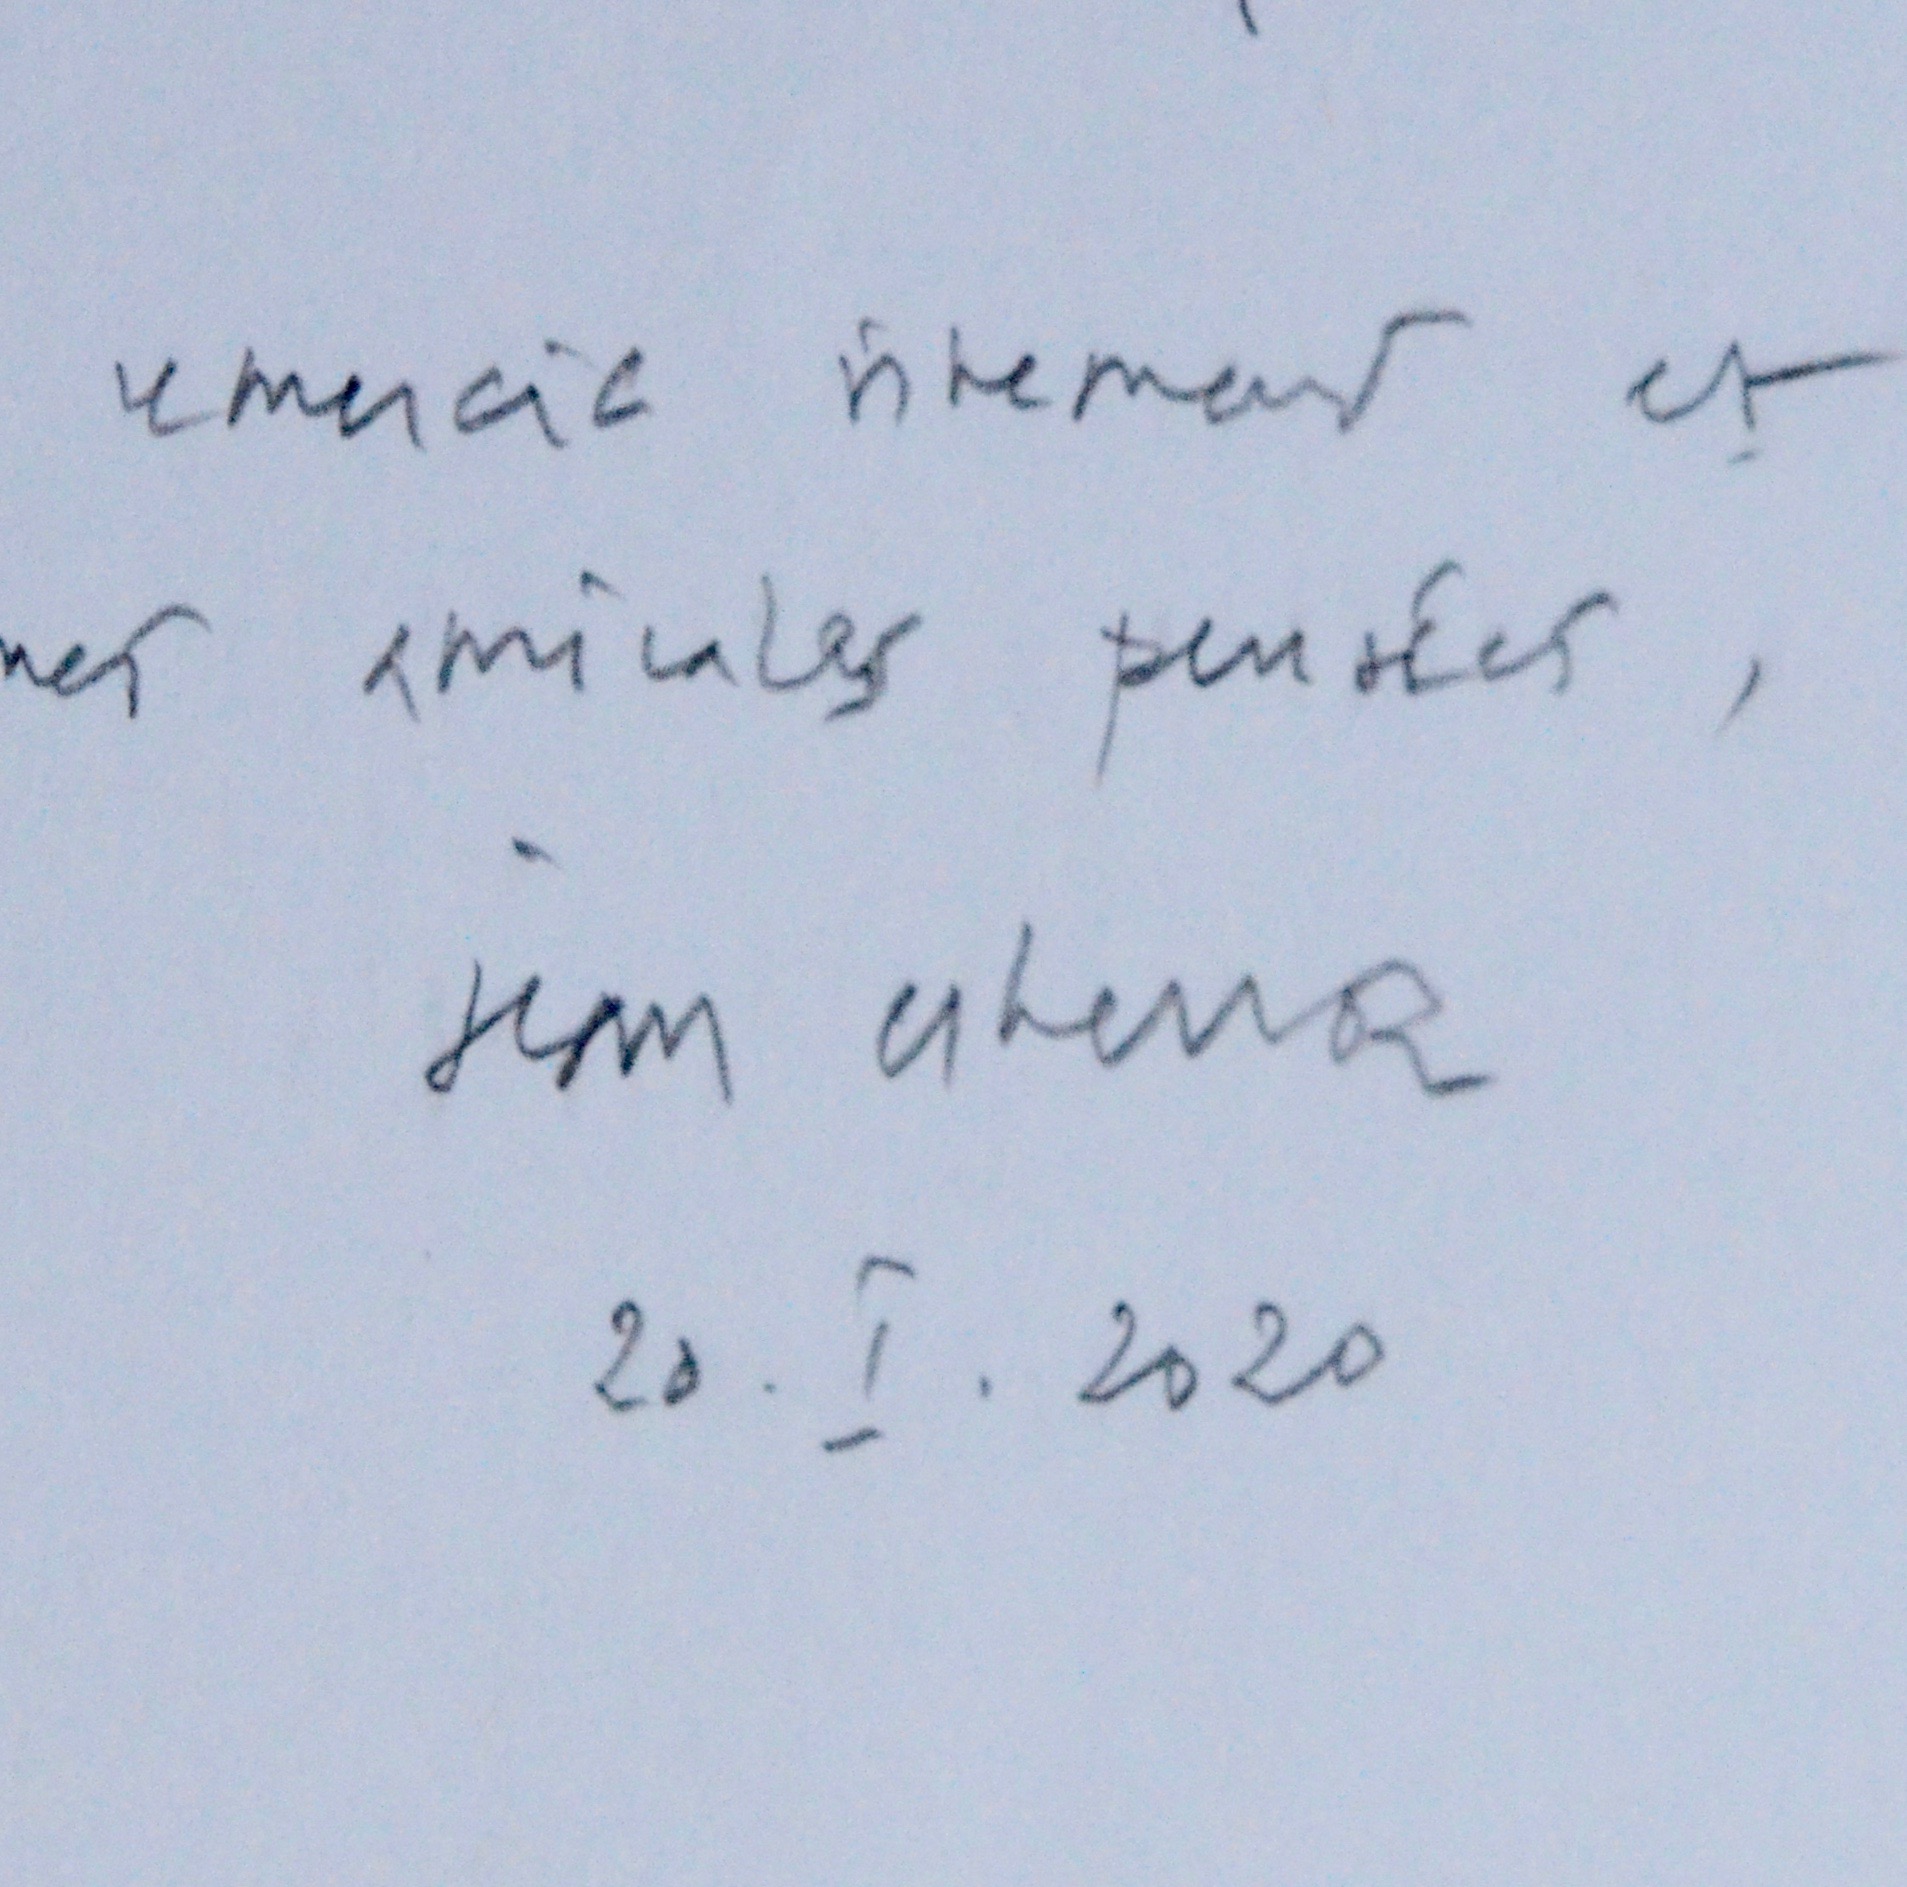 remercie vivement et
mes amicales pensées,
jean
20. I. 2020